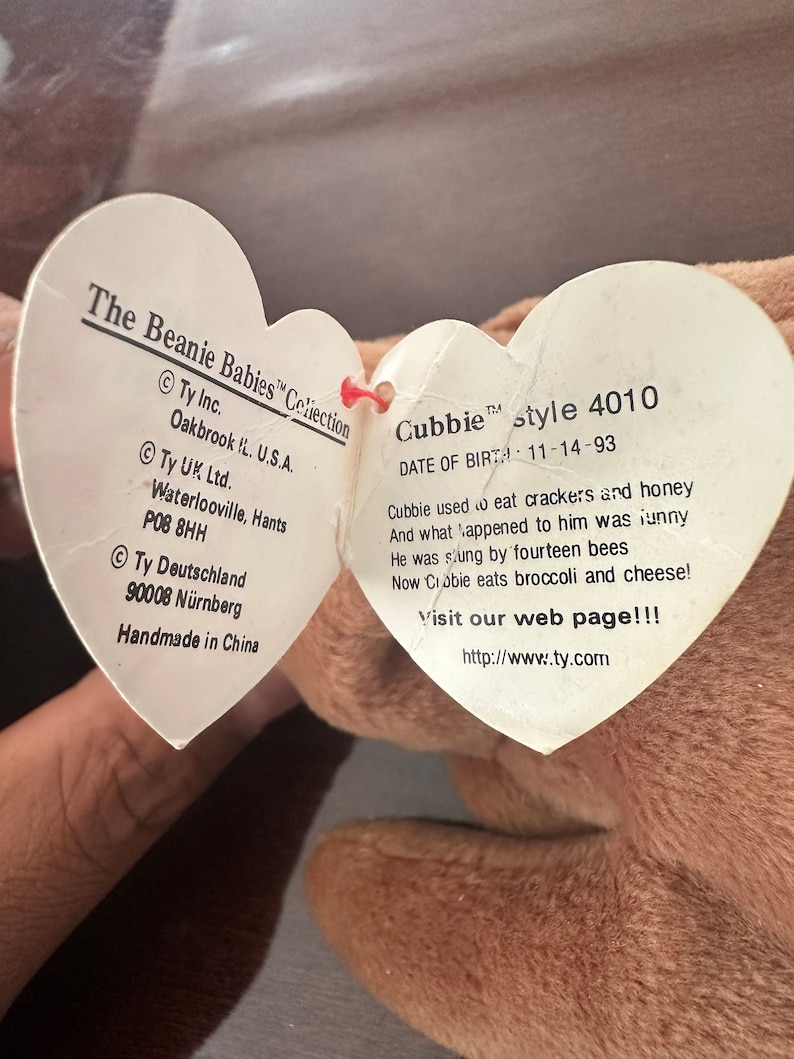 The Beanie Babies™ Collection
© Ty Inc.
Oakbrook IL. U.S.A.
© Ty UK Ltd.
Waterlooville, Hants
P08 8HH
© Ty Deutschland
90008 Nürnberg
Handmade in China
Cubbie™ style 4010
DATE OF BIRTH : 11-14-93
Cubbie used to eat crackers and honey
And what happened to him was funny
He was stung by fourteen bees
Now Cubbie eats broccoli and cheese!
Visit our web page!!!
http://www.ty.com